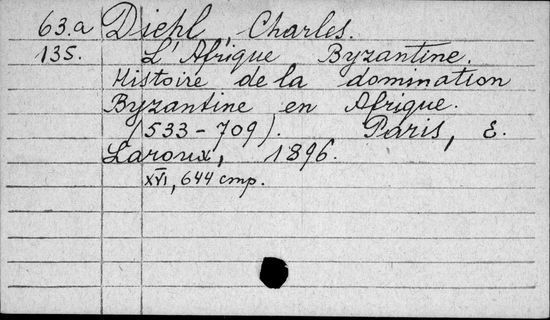 63.a Diehl, Charles.
135. L'Afrique Byzantine.
Histoire de la domination
Byzantine en Afrique.
(533-709). Paris, E.
Laroux, 1896.
XVI, 644 cmp.